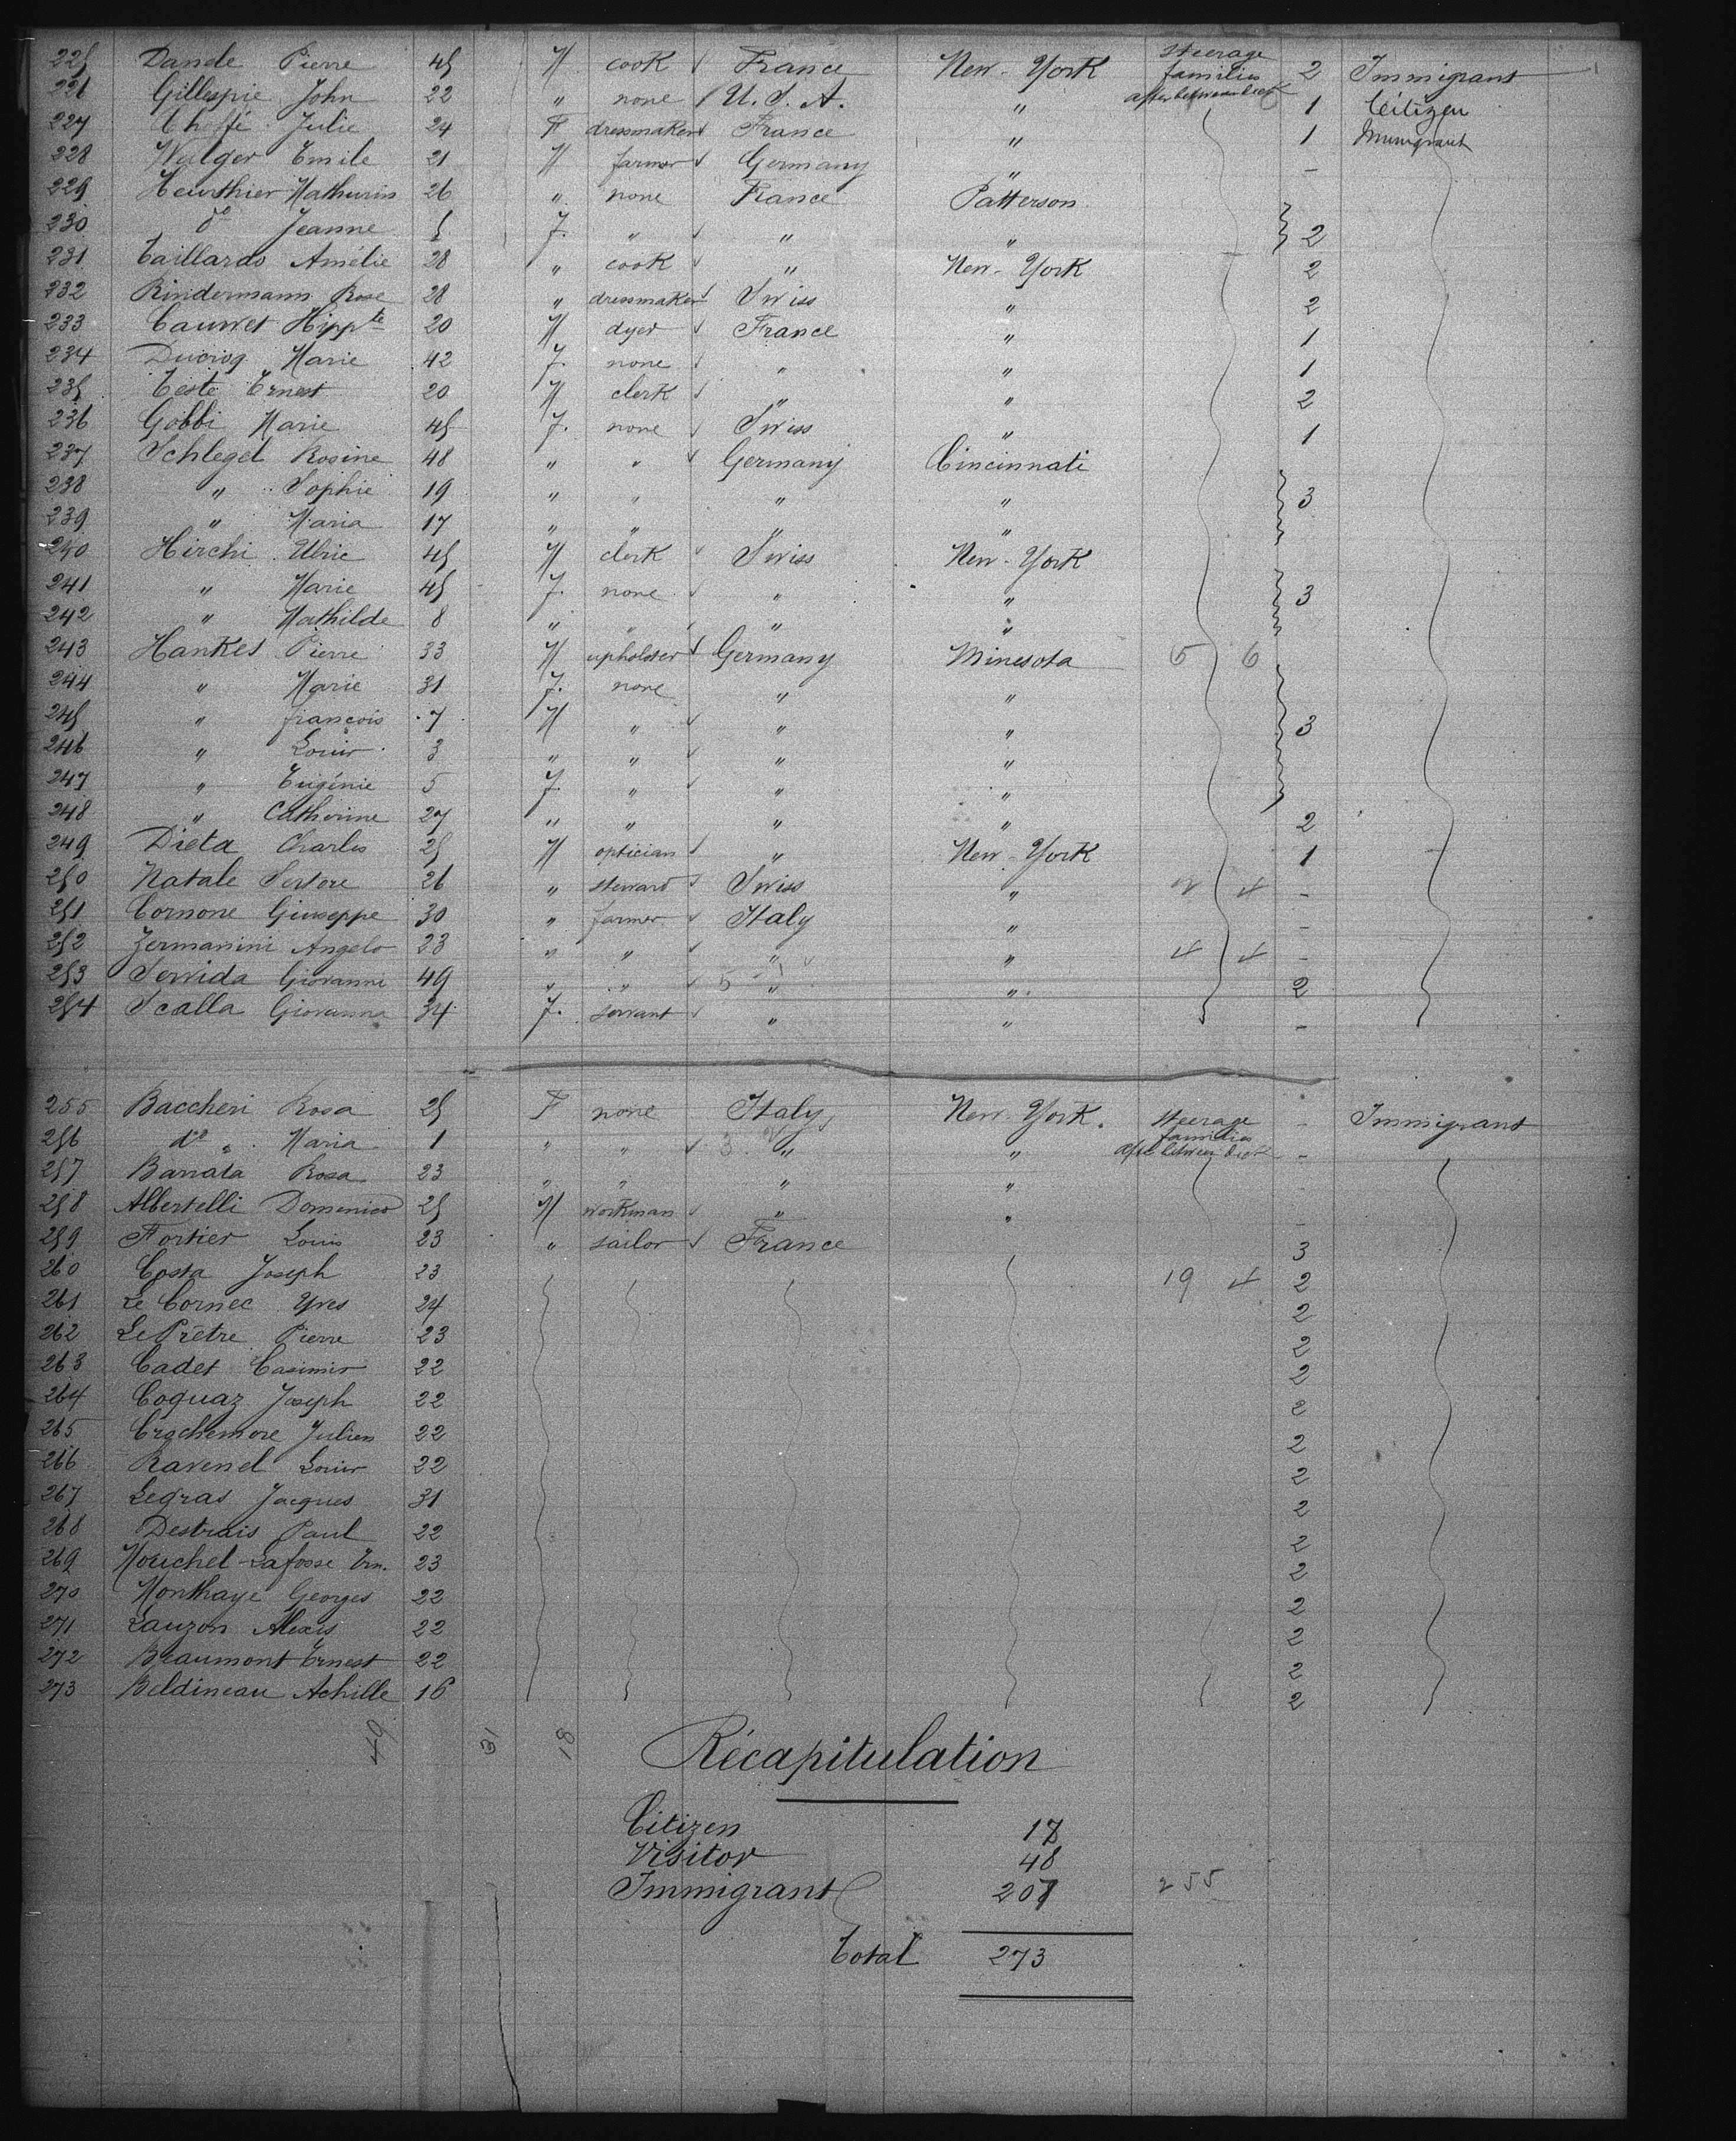 225 Dande Pierre 45 M cook France New-York Steerage families aft between deck 2 Immigrant
226 Gillespie John 22 " none U.S.A. " 1 Citizen
227 Julie 24 F dressmaker France " 1 Immigrant
228 Walger Emile 21 M farmer Germany " -
229 Heurthier Mathurin 26 " none France Patterson
230 do Jeanne F. " " " 2
231 Taillards Amélie 28 " cook " New-York 2
232 Rindermann Rose 28 " dressmaker Swiss " 2
233 Cauwet Hippte 20 M dyer France " 1
234 Marie 42 F. none " " 1
235 Teste Ernest 20 M clerk " " 2
236 Gobbi Marie 45 F. none Swiss " 1
237 Schlegel Rosine 48 " " Germany Cincinnati
238 " Sophie 19 " " " " 3
239 " Maria 17 " " " "
240 Hirchi Ulric 45 M clerk Swiss New-York
241 " Marie 45 F. none " " 3
242 " Mathilde 8 " " " "
243 Hankes Pierre 33 M upholster Germany Minesota 5 6
244 " Marie 31 F. none " "
245 " françois 7 M " " " 3
246 " Louis 3 " " " "
247 " Eugénie 5 F. " " "
248 " Catherine 27 " " " " 2
249 Dieta Charles 25 M optician " New-York 1
250 Natale Sertore 26 " steward Swiss " 4 -
251 Cornone Giuseppe 30 " farmer Italy " -
252 Zermanini Angelo 23 " " " " 4 4 -
253 Servida Giovanni 49 " " 5 " " 2
254 Scalla Giovanna 34 F. servant " " -
255 Baccheri Rosa 25 F none Italy New-York. Steerage families aft between deck - Immigrant
256 do " Maria 1 " " 3 " " -
257 Barrata Rosa 23 " " " "
258 Albertelli Domenico 25 M workman " " -
259 Fortier Louis 23 " sailor France 3
260 Costa Joseph 23 19 4 2
261 Le Cornec Yves 24 2
262 Le Prêtre Pierre 23 2
263 Cadet Casimir 22 2
264 Coquaz Joseph 22 2
265 Crochemore Julien 22 2
266 Ravenel Louis 22 2
267 Legras Jacques 31 2
268 Destrais Paul 22 2
269 Mouchel-Lafosse Ern. 23 2
270 Monthaye Georges 22 2
271 Lauzon Alexis 22 2
272 Beaumont Ernest 22 2
273 Beldineau Achille 16 2
49 31 18
Récapitulation
Citizen 18
Visitor 48
Immigrant 207 255
Total 273